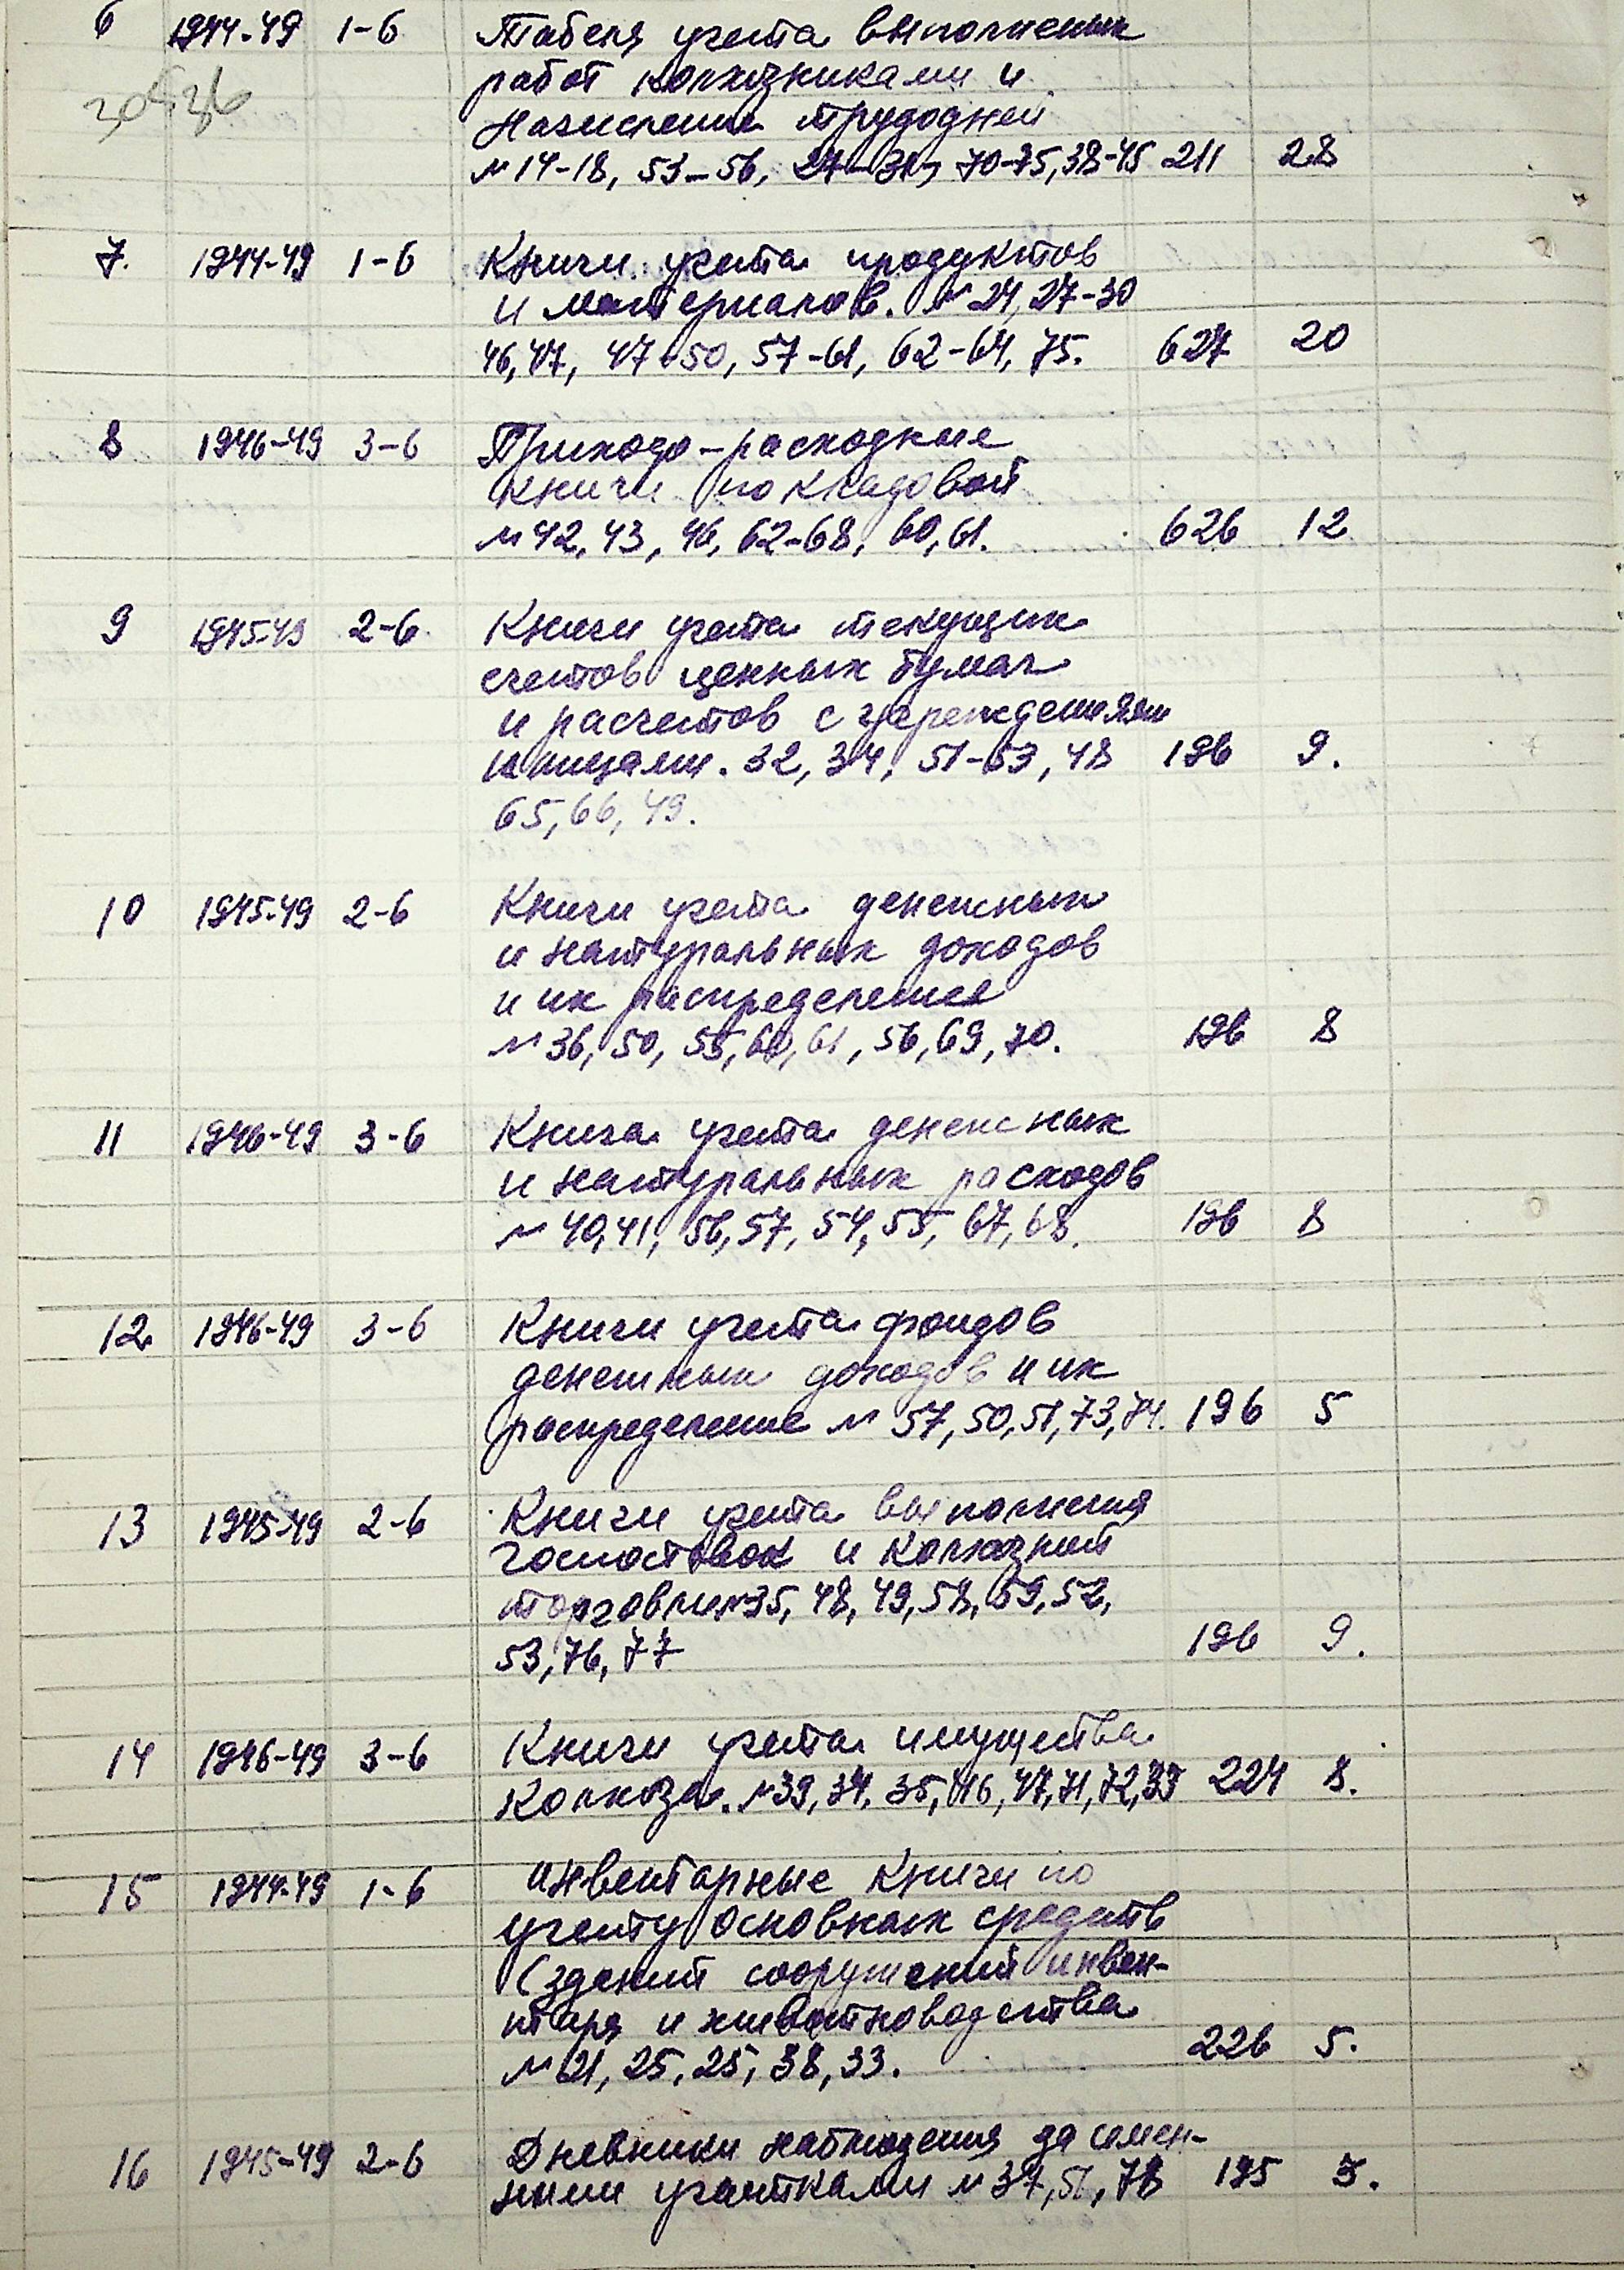 6 1944-49 1-6 Табеля учета выполненых
работ колхозниками и
Начисление трудодней
№ 14-18, 53-56, 27-31, 70-75, 38-45 211 28
7. 1944-49 1-6 Книги учета продуктов
и материалов. № 24, 27-30
46, 47, 47-50, 57-61, 62-64, 75. 627 20
8 1946-49 3-6 Приходо-расходные
книги по кладовой
№ 42, 43, 46, 62-68, 60, 61. 626 12
9 1945-49 2-6 Книги учета текущих
счетов ценных бумаг
и расчетов с учреждениями
и лицами. 32, 34, 51-53, 48 196 9.
65, 66, 49.
10 1945-49 2-6 Книги учета денежных
и натуральных доходов
и их распределение
№ 36, 50, 55, 60, 61, 56, 69, 70. 196 8
11 1946-49 3-6 Книга учета денежных
и натуральных расходов
№ 40, 41, 56, 57, 54, 55, 67, 68. 196 8
12. 1946-49 3-6 Книги учета фондов
денежных доходов и их
распределение № 57, 50, 51, 73, 74. 196 5
13 1945-49 2-6 Книги учета выполнения
госпоставок и колхозной
торговли № 35, 48, 49, 58, 59, 52,
53, 76, 77 196 9.
14 1946-49 3-6 Книги учета имущества
Колхоза. № 39, 34, 35, 46, 47, 71, 72, 33 224 8.
15 1944-49 1-6 Инвентарные книги по
учету основных средств
(зданий сооружений инвен-
таря и животноводства
№ 21, 25, 25, 38, 33. 226 5.
16 1945-49 2-6 Дневники наблюдения за семен-
ными участками № 37, 51, 78 195 3.